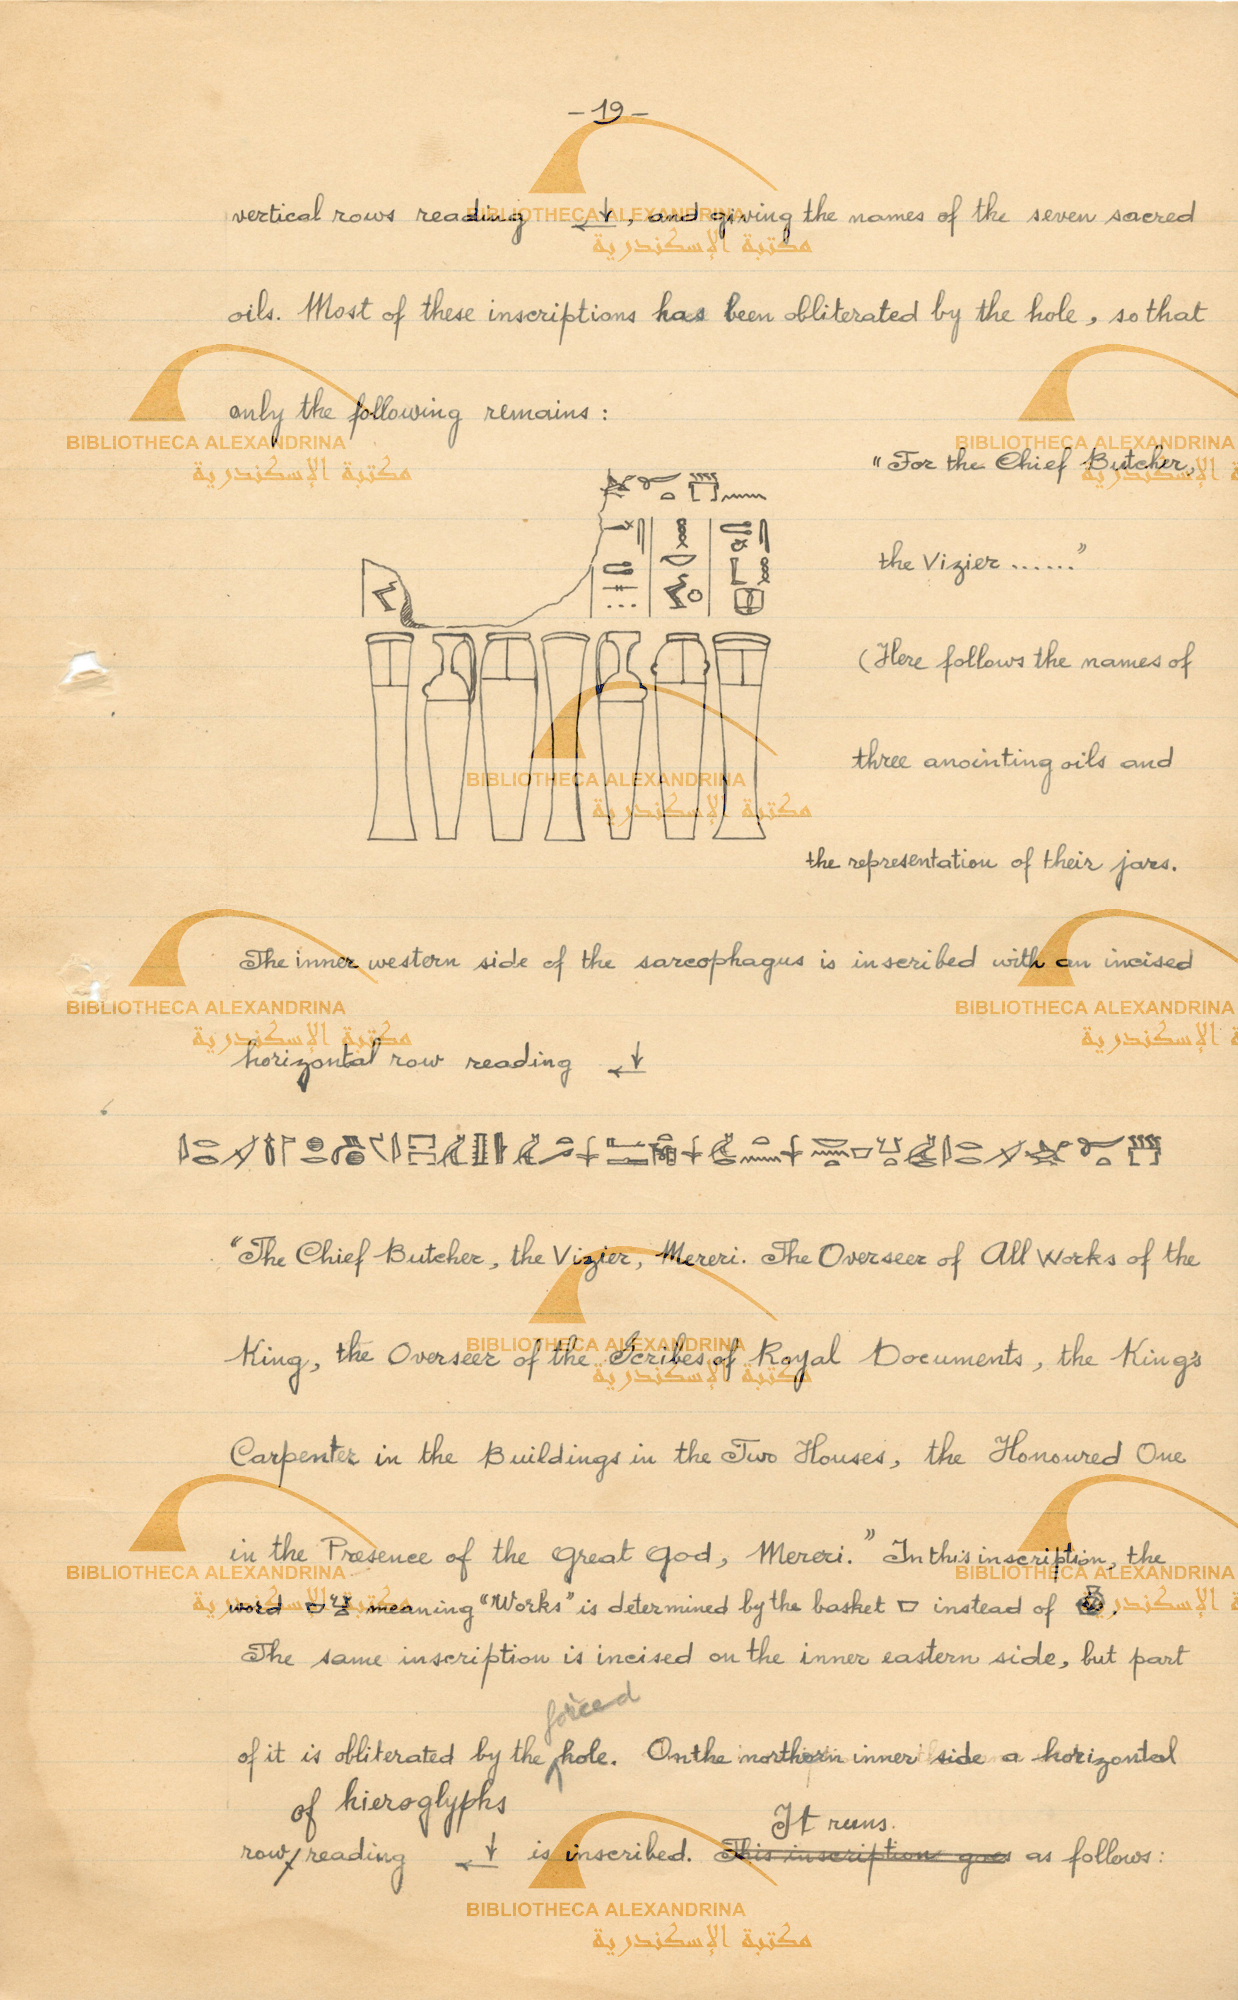 - 19 -
vertical rows reading , and giving the names of the seven sacred
oils. Most of these inscriptions has been obliterated by the hole, so that
only the following remains :
"For the Chief Butcher,
the Vizier ......"
(Here follows the names of
three anointing oils and
the representation of their jars.
The inner western side of the sarcophagus is inscribed with an incised
horizontal row reading
"The Chief Butcher, the Vizier, Mereri. The Overseer of All Works of the
King, the Overseer of the Scribes of Royal Documents, the King's
Carpenter in the Buildings in the Two Houses, the Honoured One
in the Presence of the Great God, Mereri." In this inscription, the
word meaning "Works" is determined by the basket instead of .
The same inscription is incised on the inner eastern side, but part
forced
of it is obliterated by the hole. On the northern inner side a horizontal
of hieroglyphs It runs.
row/ reading is inscribed. This inscription goes as follows :
BIBLIOTHECA ALEXANDRINA
مكتبة الإسكندرية